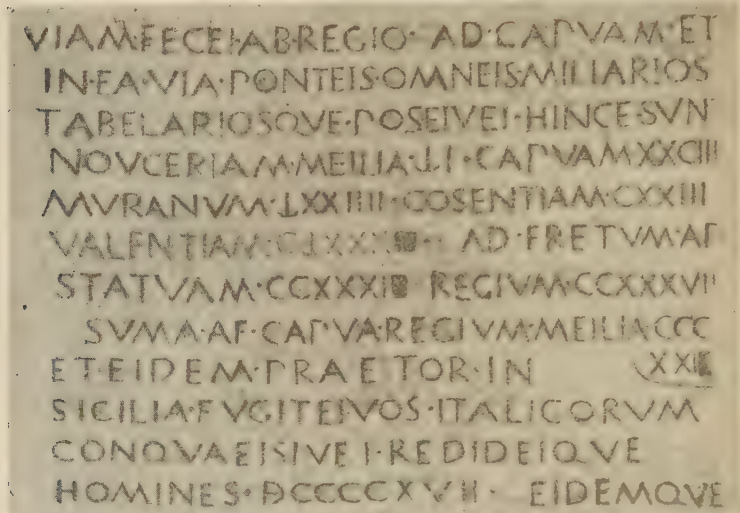 VIAM·FECEI·AB·REGIO· AD·CAPVAM·ET
IN·EA·VIA·PONTEIS·OMNEIS·MILIARIOS
TABELARIOSQVE·POSEIVEI·HINCE·SVN
NOVCERIAM·MEILIA·ↆI·CAPVAM·XXCIII
MVRANVM·ↆXXIIII·COSENTIAM·CXXIII
VALENTIAM· AD·FRETVM·AD
STATVAM·CCXXXI REGIVM·CCXXXVII
SVMA·AF·CAPVA·REGIVM·MEILIA·CCC
ET·EIDEM·PRAETOR·IN XXI
SICILIA·FVGITEIVOS·ITALICORVM
CONQVAEISIVEI·REDIDEIQVE
HOMINES·DCCCCXVII· EIDEMQVE